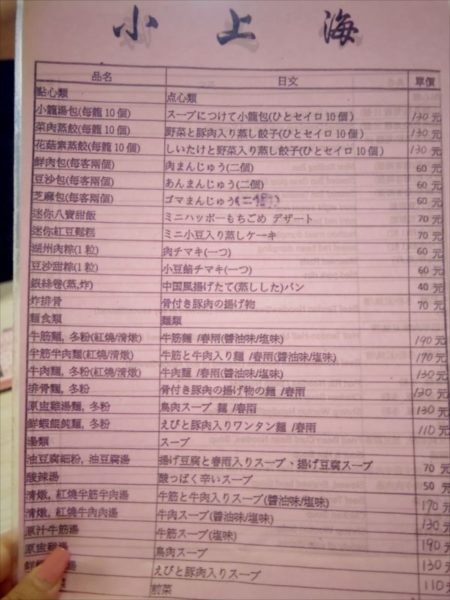 小 上 海
品名 日文 單價
點心類 点心類
小籠湯包(每籠10個) スープにつけて小籠包(ひとセイロ10個) 130元
菜肉蒸餃(每籠10個) 野菜と豚肉入り蒸し餃子(ひとセイロ10個) 130元
花菇素蒸餃(每籠10個) しいたけと野菜入り蒸し餃子(ひとセイロ10個) 130元
鮮肉包(每客兩個) 肉まんじゅう(二個) 60元
豆沙包(每客兩個) あんまんじゅう(二個) 60元
芝麻包(每客兩個) ゴマまんじゅう(二個) 60元
迷你八寶甜飯 ミニハッポーもちごめ デザート 70元
迷你紅豆鬆糕 ミニ小豆入り蒸しケーキ 70元
湖州肉粽(1粒) 肉チマキ(一つ) 60元
豆沙甜粽(1粒) 小豆餡チマキ(一つ) 60元
銀絲卷(蒸,炸) 中国風揚げたて(蒸しした)パン 40元
炸排骨 骨付き豚肉の揚げ物 70元
麵食類 麵類
牛筋麵,冬粉(紅燒/清燉) 牛筋麵/春雨(醬油味/塩味) 190元
半筋半肉麵(紅燒/清燉) 牛筋と牛肉入り麵/春雨(醬油味/塩味) 170元
牛肉麵,冬粉(紅燒/清燉) 牛肉麵/春雨(醬油味/塩味) 130元
排骨麵,冬粉 骨付き豚肉の揚げ物の麵/春雨 130元
原盅雞湯麵,冬粉 鳥肉スープ 麵/春雨 130元
鮮蝦餛飩麵,冬粉 えびと豚肉入りワンタン麵/春雨 110元
湯類 スープ
油豆腐細粉,油豆腐湯 揚げ豆腐と春雨入りスープ、揚げ豆腐スープ 70元
酸辣湯 酸っぱく辛いスープ 50元
清燉,紅燒半筋半肉湯 牛筋と牛肉入りスープ(醬油味/塩味) 170元
清燉,紅燒牛肉肉湯 牛肉スープ(醬油味/塩味) 130元
原汁牛筋湯 牛筋スープ(塩味) 190元
原盅雞湯 鳥肉スープ 130元
鮮 えびと豚肉入りスープ 110元
前菜